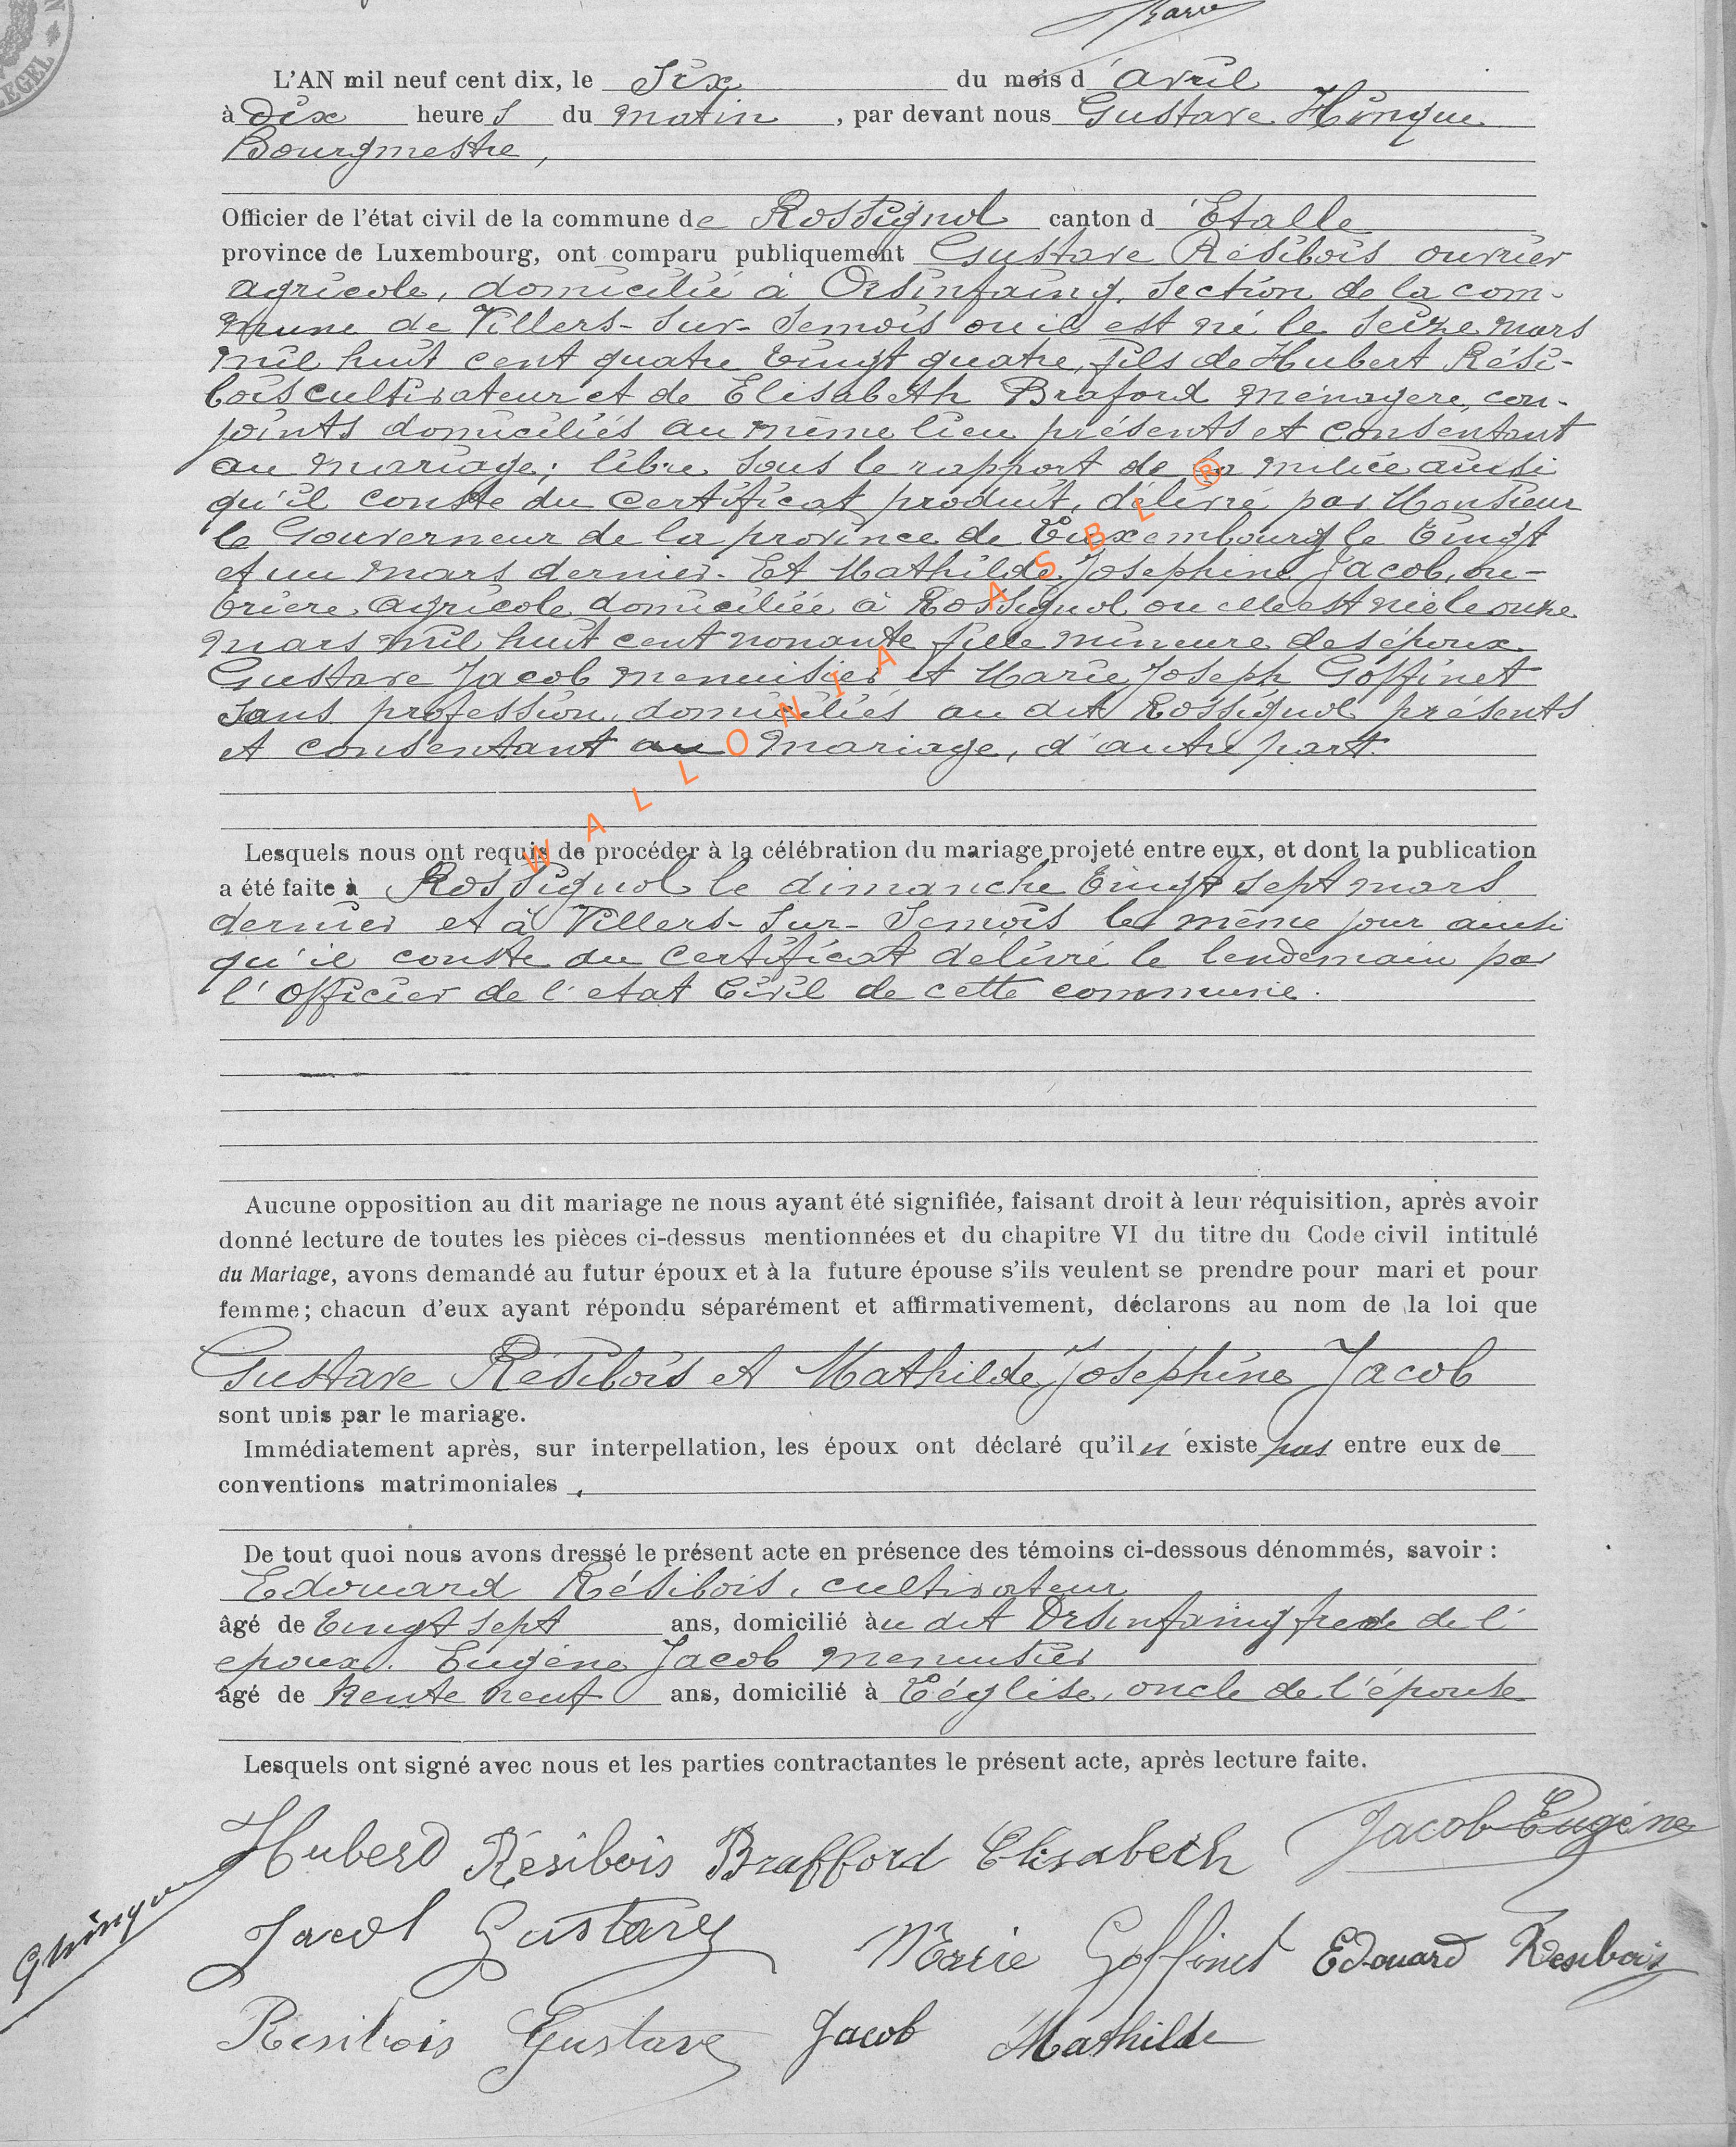 Barre
L'AN mil neuf cent dix, le Six du mois d'avril
à Dix heures du matin, par devant nous Gustave Hinque
Bourgmestre,
Officier de l'état civil de la commune de Rossignol canton d'Etalle
province de Luxembourg, ont comparu publiquement Gustave Résibois ouvrier
agricole, domicilié à Orsinfaing, section de la com-
mune de Villers-Sur-Semois ou il est né le seize mars
mil huit cent quatre vingt quatre, fils de Hubert Rési-
bois cultivateur et de Elisabeth Braford ménagere, con-
joints domiciliés au même lieu présents et consentant
au mariage; libre sous le rapport de la milice ainsi
qu'il conste du certificat produit, délivré par Monsieur
le Gouverneur de la province de Luxembourg le vingt
et un mars dernier. Et Mathilde Josephine Jacob, ou-
vriere agricole domiciliée à Rossignol ou elle est née le onze
mars mil huit cent nonante fille mineure des époux
Gustave Jacob menuisier et Marie Joseph Goffinet
sans profession, domiciliés au dit Rossignol présents
et consentant au mariage, d'autre part.
WALLONIA ASBL ®
Lesquels nous ont requis de procéder à la célébration du mariage projeté entre eux, et dont la publication
a été faite à Rossignol le dimanche vingt sept mars
dernier et à Villers-Sur-Semois le même jour ainsi
qu'il conste du certificat délivré le lendemain par
l'Officier de l'etat Civil de cette commune.
Aucune opposition au dit mariage ne nous ayant été signifiée, faisant droit à leur réquisition, après avoir
donné lecture de toutes les pièces ci-dessus mentionnées et du chapitre VI du titre du Code civil intitulé
du Mariage, avons demandé au futur époux et à la future épouse s'ils veulent se prendre pour mari et pour
femme; chacun d'eux ayant répondu séparément et affirmativement, déclarons au nom de la loi que
Gustave Résibois et Mathilde Josephine Jacob
sont unis par le mariage.
Immédiatement après, sur interpellation, les époux ont déclaré qu'il n'existe pas entre eux de
conventions matrimoniales.
De tout quoi nous avons dressé le présent acte en présence des témoins ci-dessous dénommés, savoir :
Edouard Résibois, cultivateur
âgé de vingt sept ans, domicilié àu dit Orsinfaing frere de l'
epoux. Eugène Jacob menuisier
âgé de trente neuf ans, domicilié à Léglise, oncle de l'épouse
Lesquels ont signé avec nous et les parties contractantes le présent acte, après lecture faite.
Huberd Résibois Brafford Elisabeth Jacob Eugène
GHinque
Jacob Gustave Marie Goffinet Edouard Resibois
Resibois Gustave Jacob Mathilde